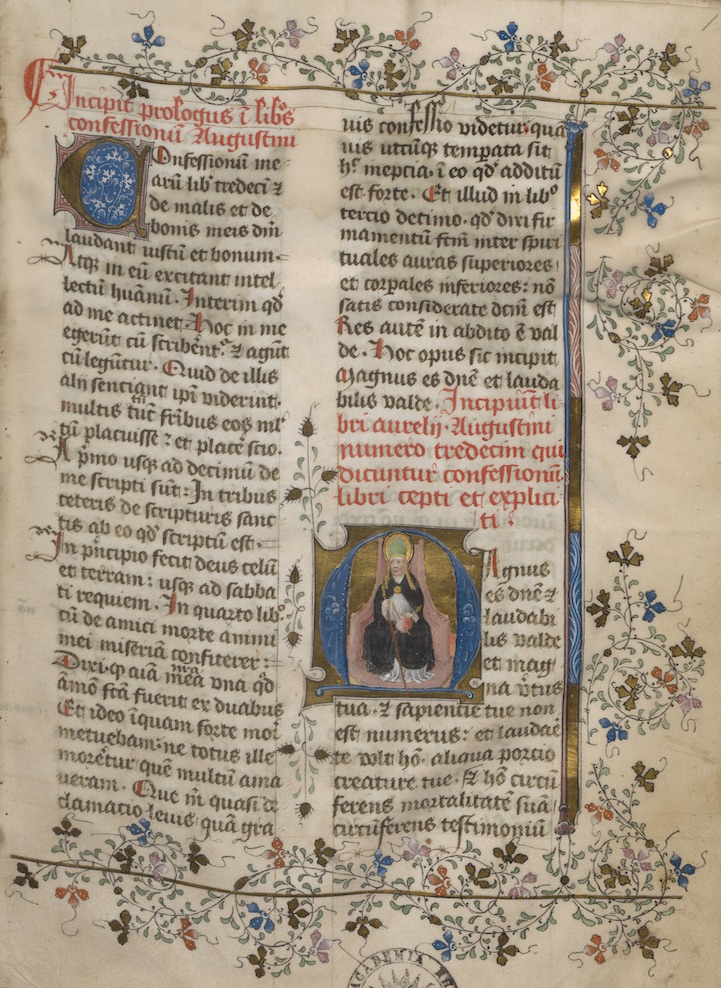 Incipit prologus ī libͦs
confessionū Augustini
Confessionū me
arū libͥ tredecī ⁊
de malis et de
bonis meis dm̄
laudant iustū et bonum.
Atqꝫ in eū excitant intel
lectū huānū. Interim qd̄
ad me actinet. Hoc in me
egerūt cū scribent᷑. ⁊ agūt
cū legūtur. Quid de illis
alij sentiant ipī viderint.
multis tn̄ frībus eos ml̄
tū placuisse ⁊ et placē scio.
A pͥmo usqꝫ ad decimū de
me scripti sūt: In tribus
ceteris de scripturis sanc
tis ab eo qd̄ scriptū est.
In pͥncipio fecit deus celū
et terram: usqꝫ ad sabba
ti requiem. In quarto libͦ.
cū de amici morte animi
mei miseriā confiterer:
Dixi. ꝙ aīa mea vna qd̄
āmō fcā fuerit ex duabus
Et ideo īquam forte mori
metuebam: ne totus ille
morēt᷑ur quē multū ama
ueram. Que m̄ quasi de
clamacio leuis quā gra
uis confessio videtur. qua
uis utcūqꝫ temꝑata sit
hͨ ineptia. ī eo qd̄ additū
est forte. Et illud in libͦ
tercio decimo. qd̄ dixi fir
mamentū fcm̄ inter spiri
tuales aquas superiores
et corꝑales inferiores: nō
satis considerate dcm̄ est
Res autē in abdito ē val
de. Hoc opus sic incipit
Magnus es dn̄e et lauda
bilis valde. Incipiūt li
bri aurelij Augustini
numero tredecim qui
dicuntur confessionū
libri cepti et explici
ti.
Magnus
es dn̄e ⁊
laudabi
lis valde
et mag
na v̄tus
tua. ⁊ sapientie tue non
est numerus: et laudare
te vlt hō. aliqua portio
creature tue. Et hō circū
ferens mortalitatē suā.
circūferens testimoniū
ACADEMIA